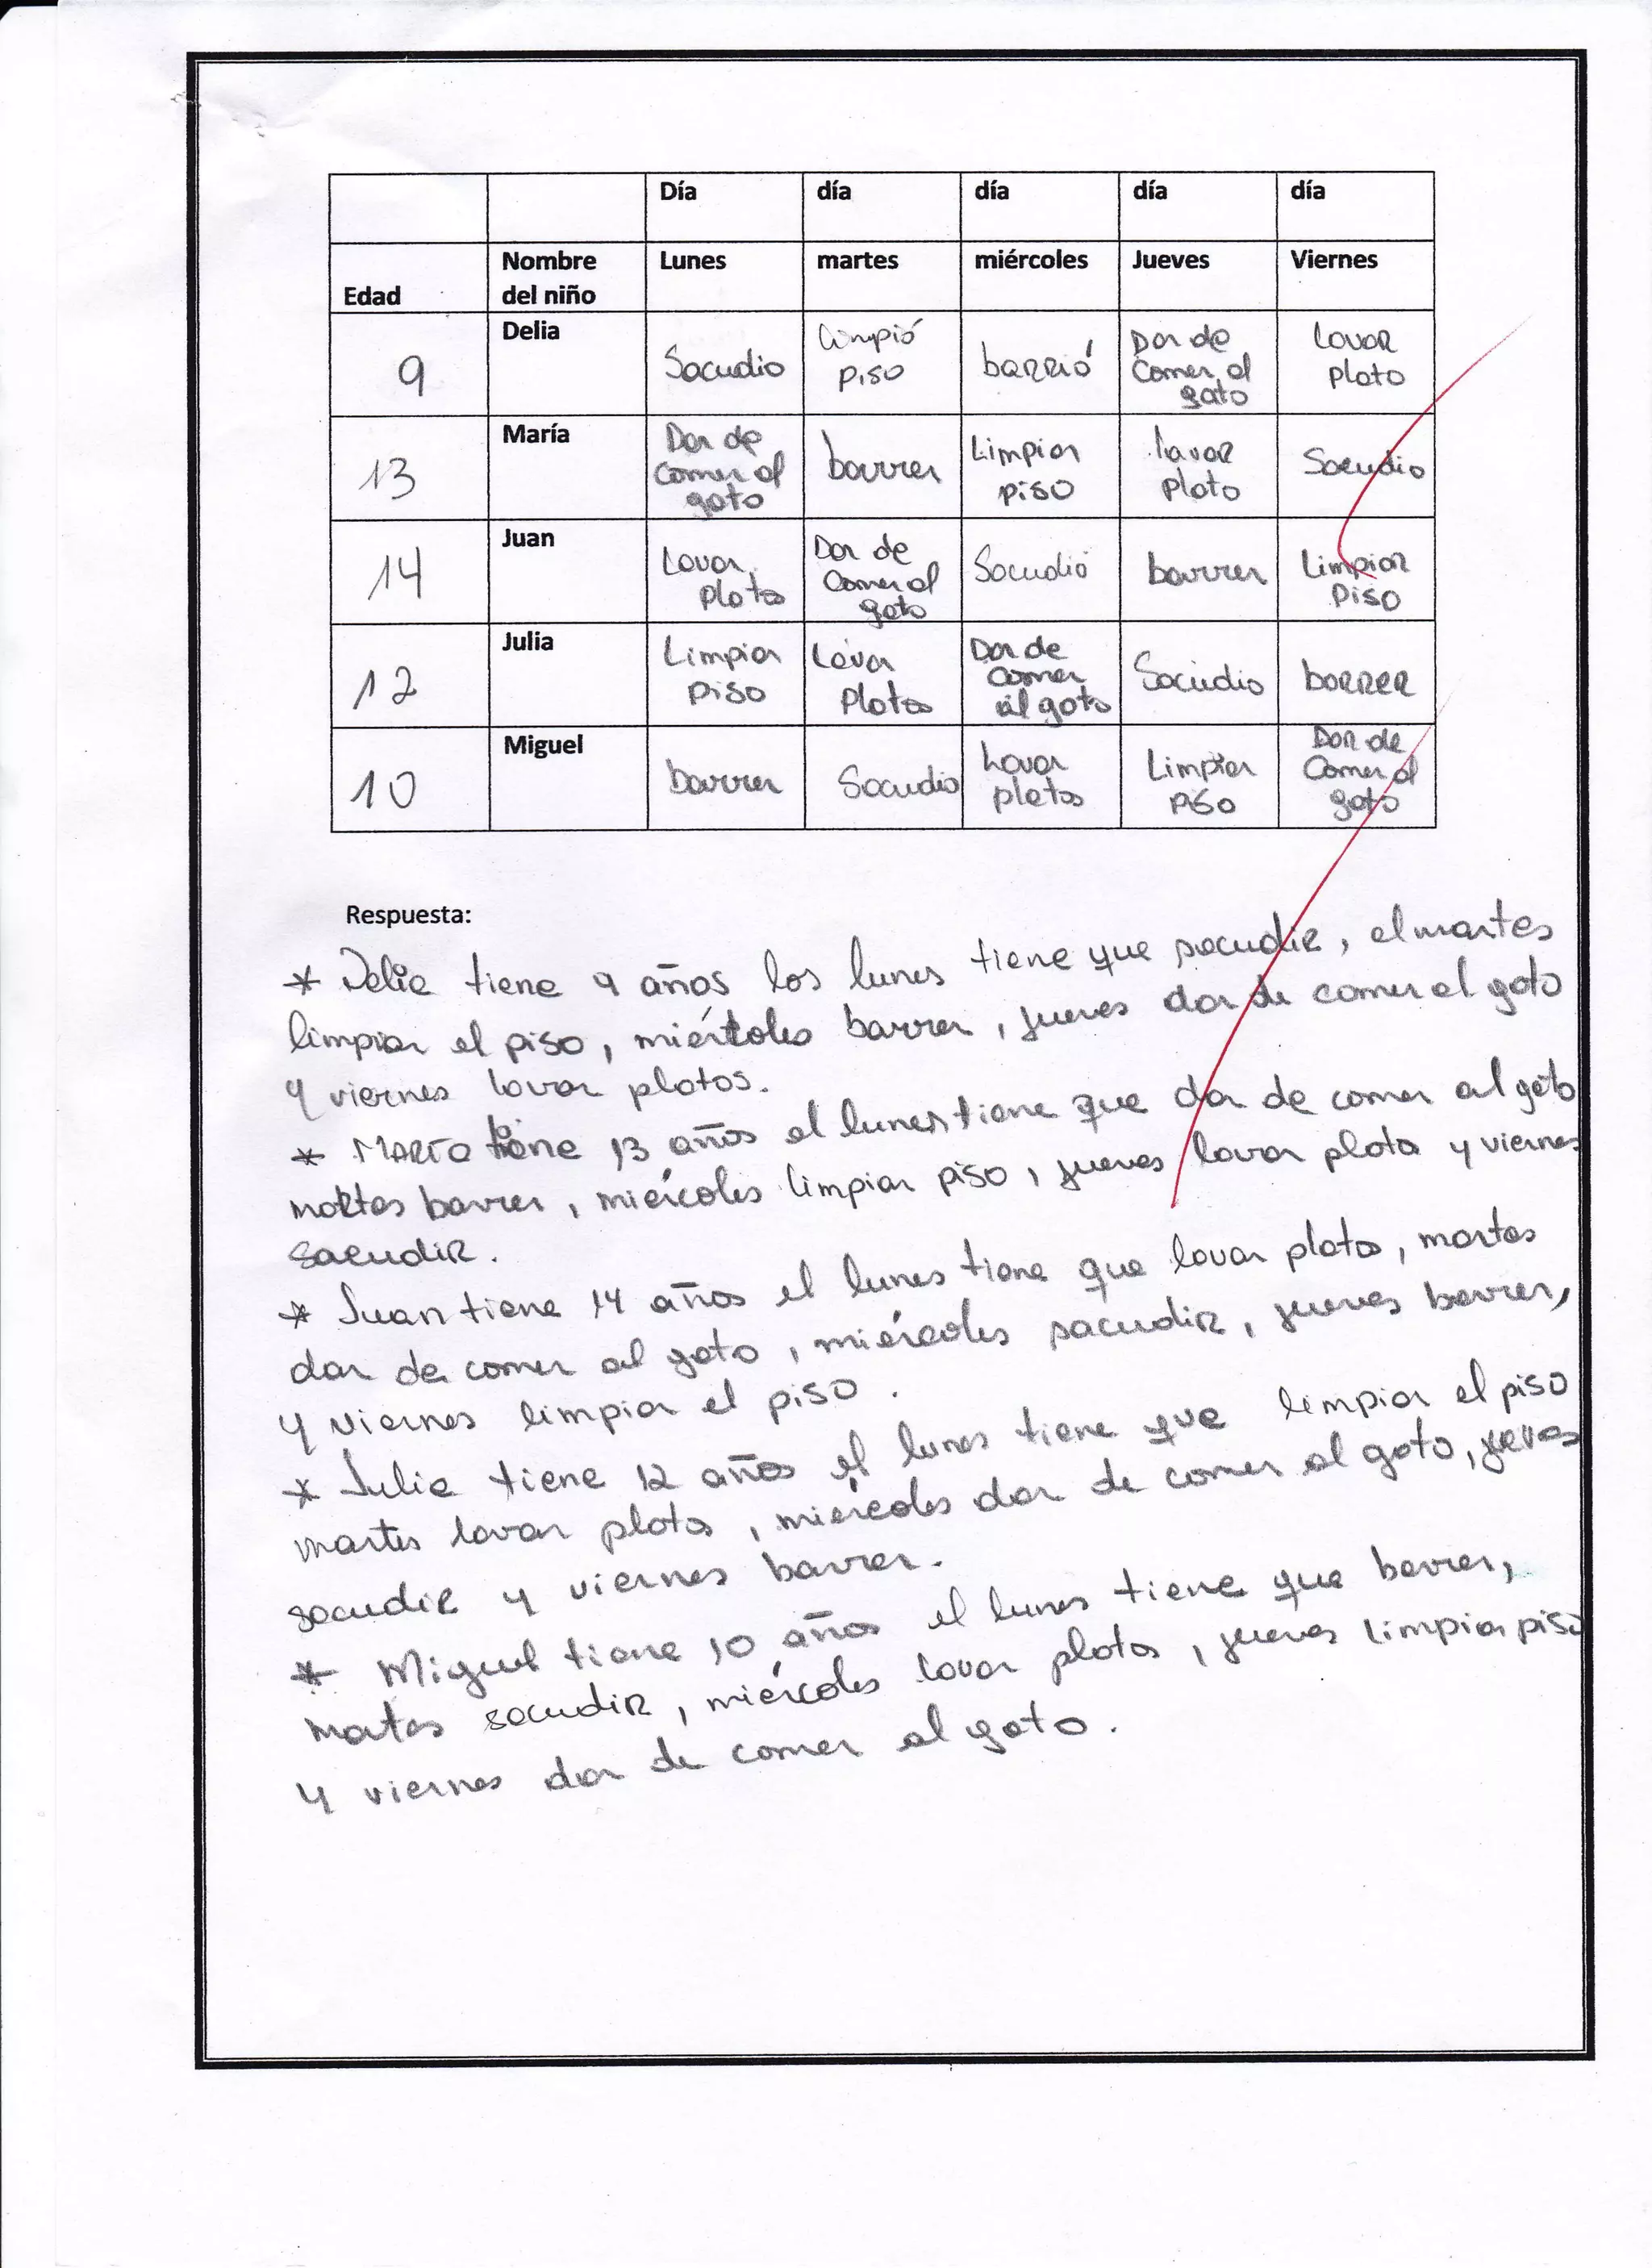 Día día día día día
Edad Nombre del niño Lunes martes miércoles Jueves Viernes
9 Delia Sacudio limpió piso barrió Dar de comer al gato lavar plato
13 María Dar de comer al gato barrer Limpiar piso lavar plato Sacudio
14 Juan Lavar platos Dar de comer al gato Sacudió barrer Limpiar Piso
12 Julia Limpiar piso Lavar Platos Dar de comer al gato Sacudio barrer
10 Miguel barrer Sacudio Lavar platos Limpiar piso Dar de comer al gato
Respuesta:
* Delia tiene 9 años los lunes tiene que sacudir, el martes
limpiar el piso, miércoles barrer, jueves dar de comer al gato
y viernes lavar platos.
* María tiene 13 años el lunes tiene que dar de comer al gato
martes barrer, miercoles limpiar piso, jueves lavar plato y viernes
sacudir.
* Juan tiene 14 años el lunes tiene que lavar platos, martes
dar de comer al gato, miércoles sacudir, jueves barrer,
y viernes limpiar el piso.
* Julia tiene 12 años el lunes tiene que limpiar el piso
martes lavar platos, miércoles dar de comer al gato, jueves
sacudir y viernes barrer.
* Miguel tiene 10 años el lunes tiene que barrer,
martes sacudir, miércoles lavar platos, jueves limpiar piso
y viernes dar de comer al gato.